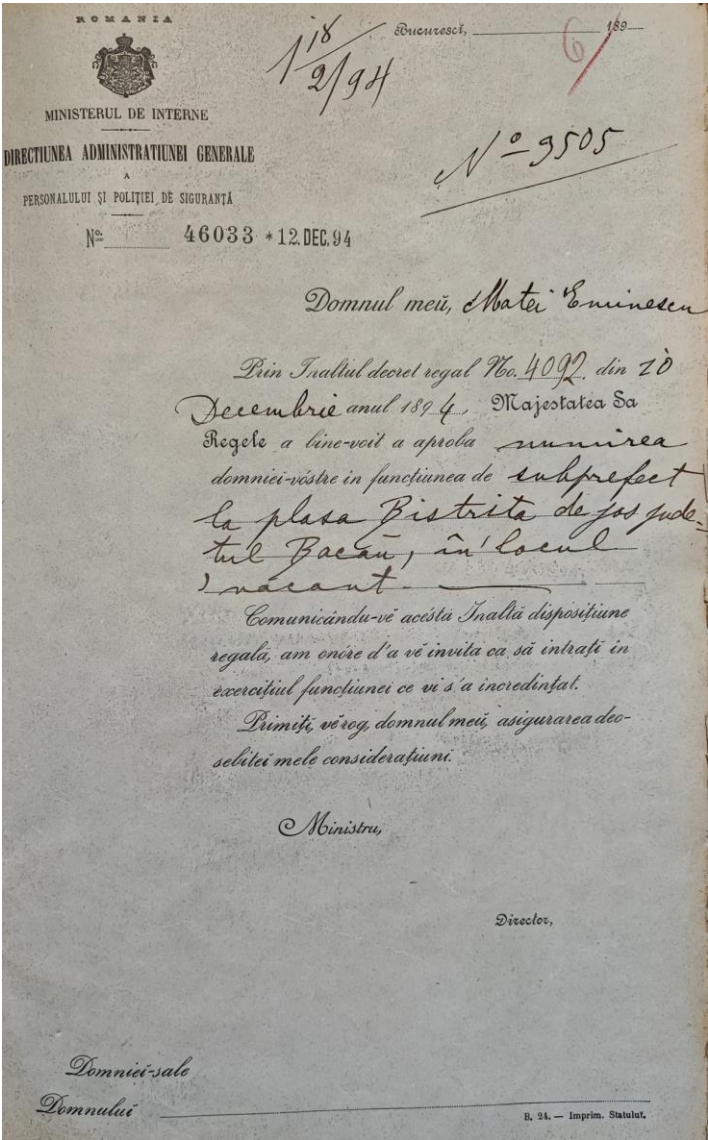 ROMANIA
Bucurescĭ, 189
6
18
2/94
MINISTERUL DE INTERNE
DIRECTIUNEA ADMINISTRATIUNEI GENERALE
A
PERSONALULUI ȘI POLIȚIEI DE SIGURANȚĂ
No 9505
No. 46033 * 12. DEC. 94
Domnul meŭ, Matei Eminescu
Prin Inaltul decret regal No. 4092. din 10
Decembrie anul 1894, Majestatea Sa
Regele a bine-voit a aproba numirea
domniei-vóstre in funcțiunea de subprefect
la plasa Bistrita de jos jude=
tul Bacău, în locul
vacant.
Comunicându-vĕ acésta Inaltă disposițiune
regală, am onóre d'a vĕ invita ca să intrați in
exercițiul funcțiunei ce vi s'a incredințat.
Primiți, vĕ rog, domnul meŭ, asigurarea deo-
sebitei mele considerațiuni.
Ministru,
Director,
Domnieĭ-sale
Domnuluĭ
B. 24. — Imprim. Statuluĭ.